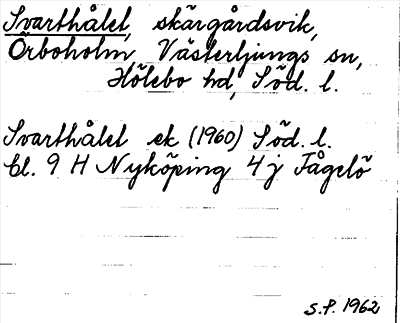 Svarthålet, skärgårdsvik,
Örboholm, Västerljungs sn,
Hölebo hd, Söd. l.
Svarthålet ek (1960) Söd. l.
bl. 9 H Nyköping 4 j Fågelö
S.P. 1962